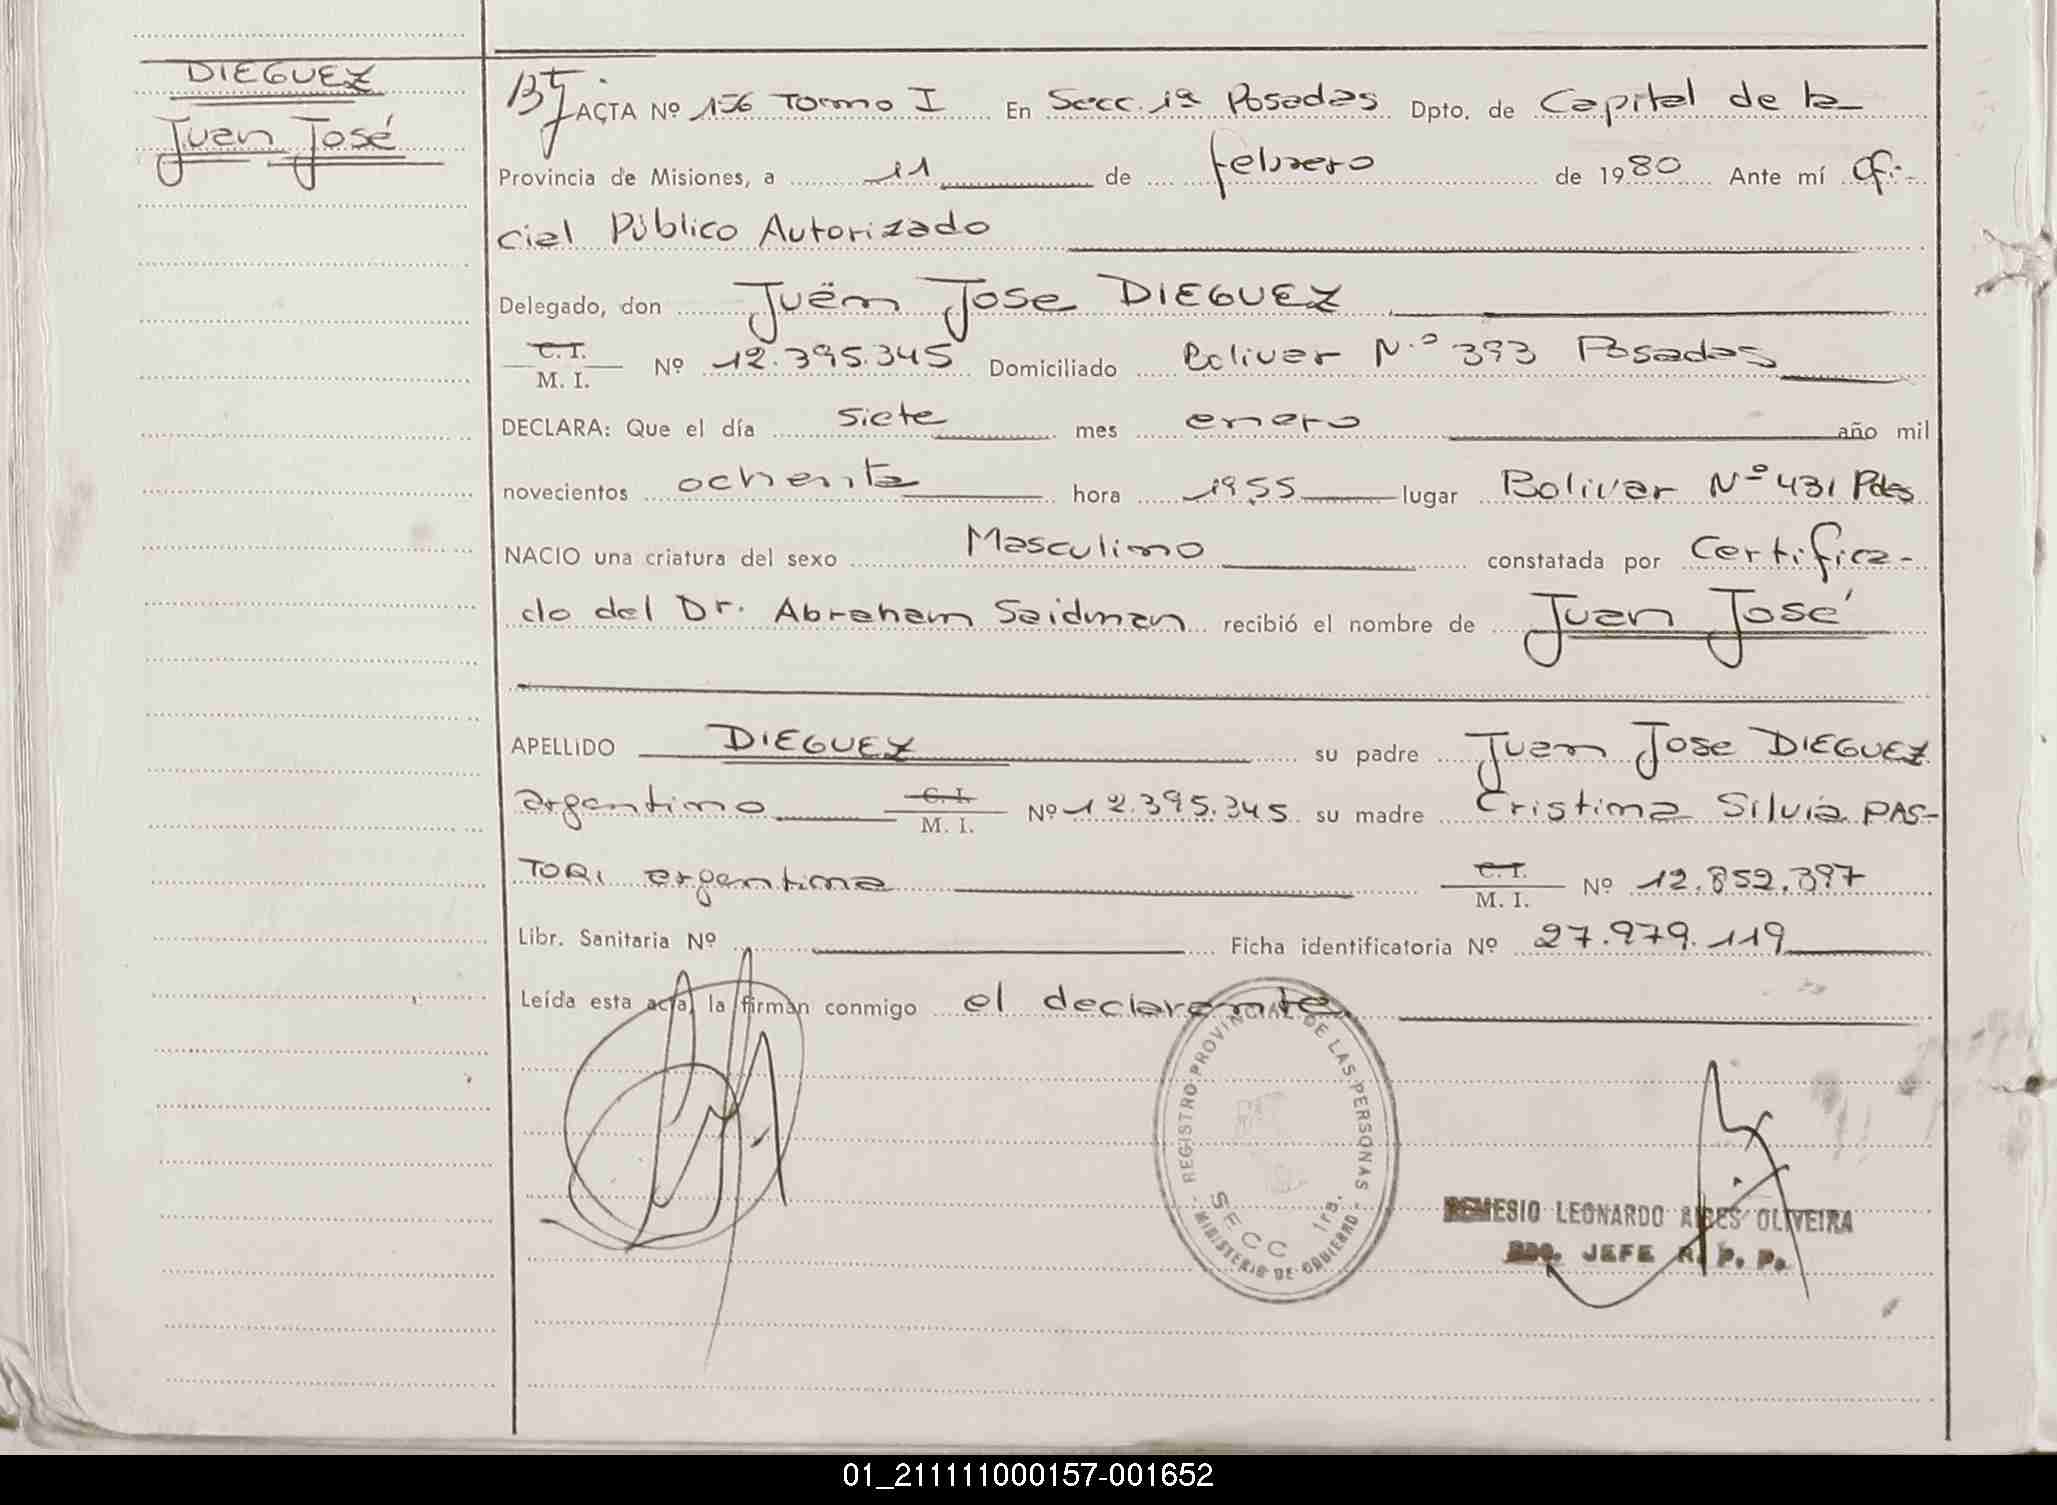 DIEGUEZ
Juan José
ACTA Nº 156 Tomo I En Secc. 1ª Posadas Dpto. de Capital de la
Provincia de Misiones, a 11 de febrero de 1980 Ante mí Ofi-
cial Público Autorizado
Delegado, don Juan Jose DIEGUEZ
C. I.
M. I. Nº 12.395.345 Domiciliado Bolivar N.º 393 Posadas
DECLARA: Que el día siete mes enero año mil
novecientos ochenta hora 19,55 lugar Bolivar Nº 431 Pdas
NACIO una criatura del sexo Masculino constatada por Certifica-
do del Dr. Abraham Saidman recibió el nombre de Juan José
APELLIDO DIEGUEZ su padre Juan Jose DIEGUEZ
argentino C. I.
M. I. Nº 12.395.345 su madre Cristina Silvia PAS-
TORI argentina C. I.
M. I. Nº 12.852.397
Libr. Sanitaria Nº Ficha identificatoria Nº 27.979.119
Leída esta acta, la firman conmigo el declarante.
REGISTRO PROVINCIAL DE LAS PERSONAS
SECC 1ra.
MINISTERIO DE GOBIERNO
REMESIO LEONARDO OLIVEIRA
JEFE R. P. P.
01_211111000157-001652